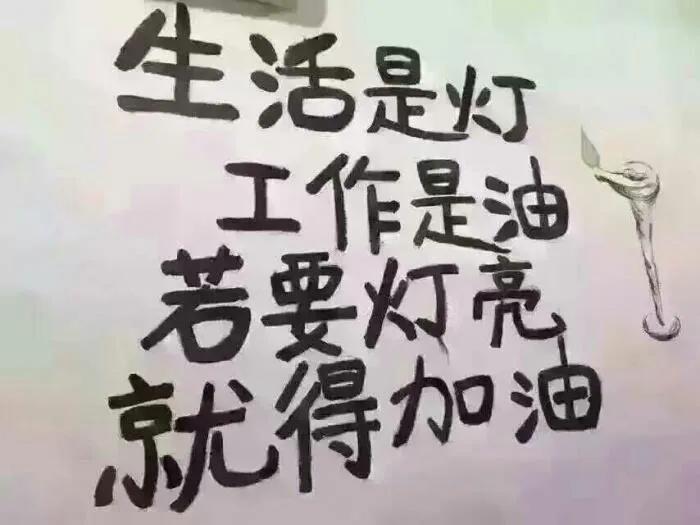 生活是灯
工作是油
若要灯亮
就得加油